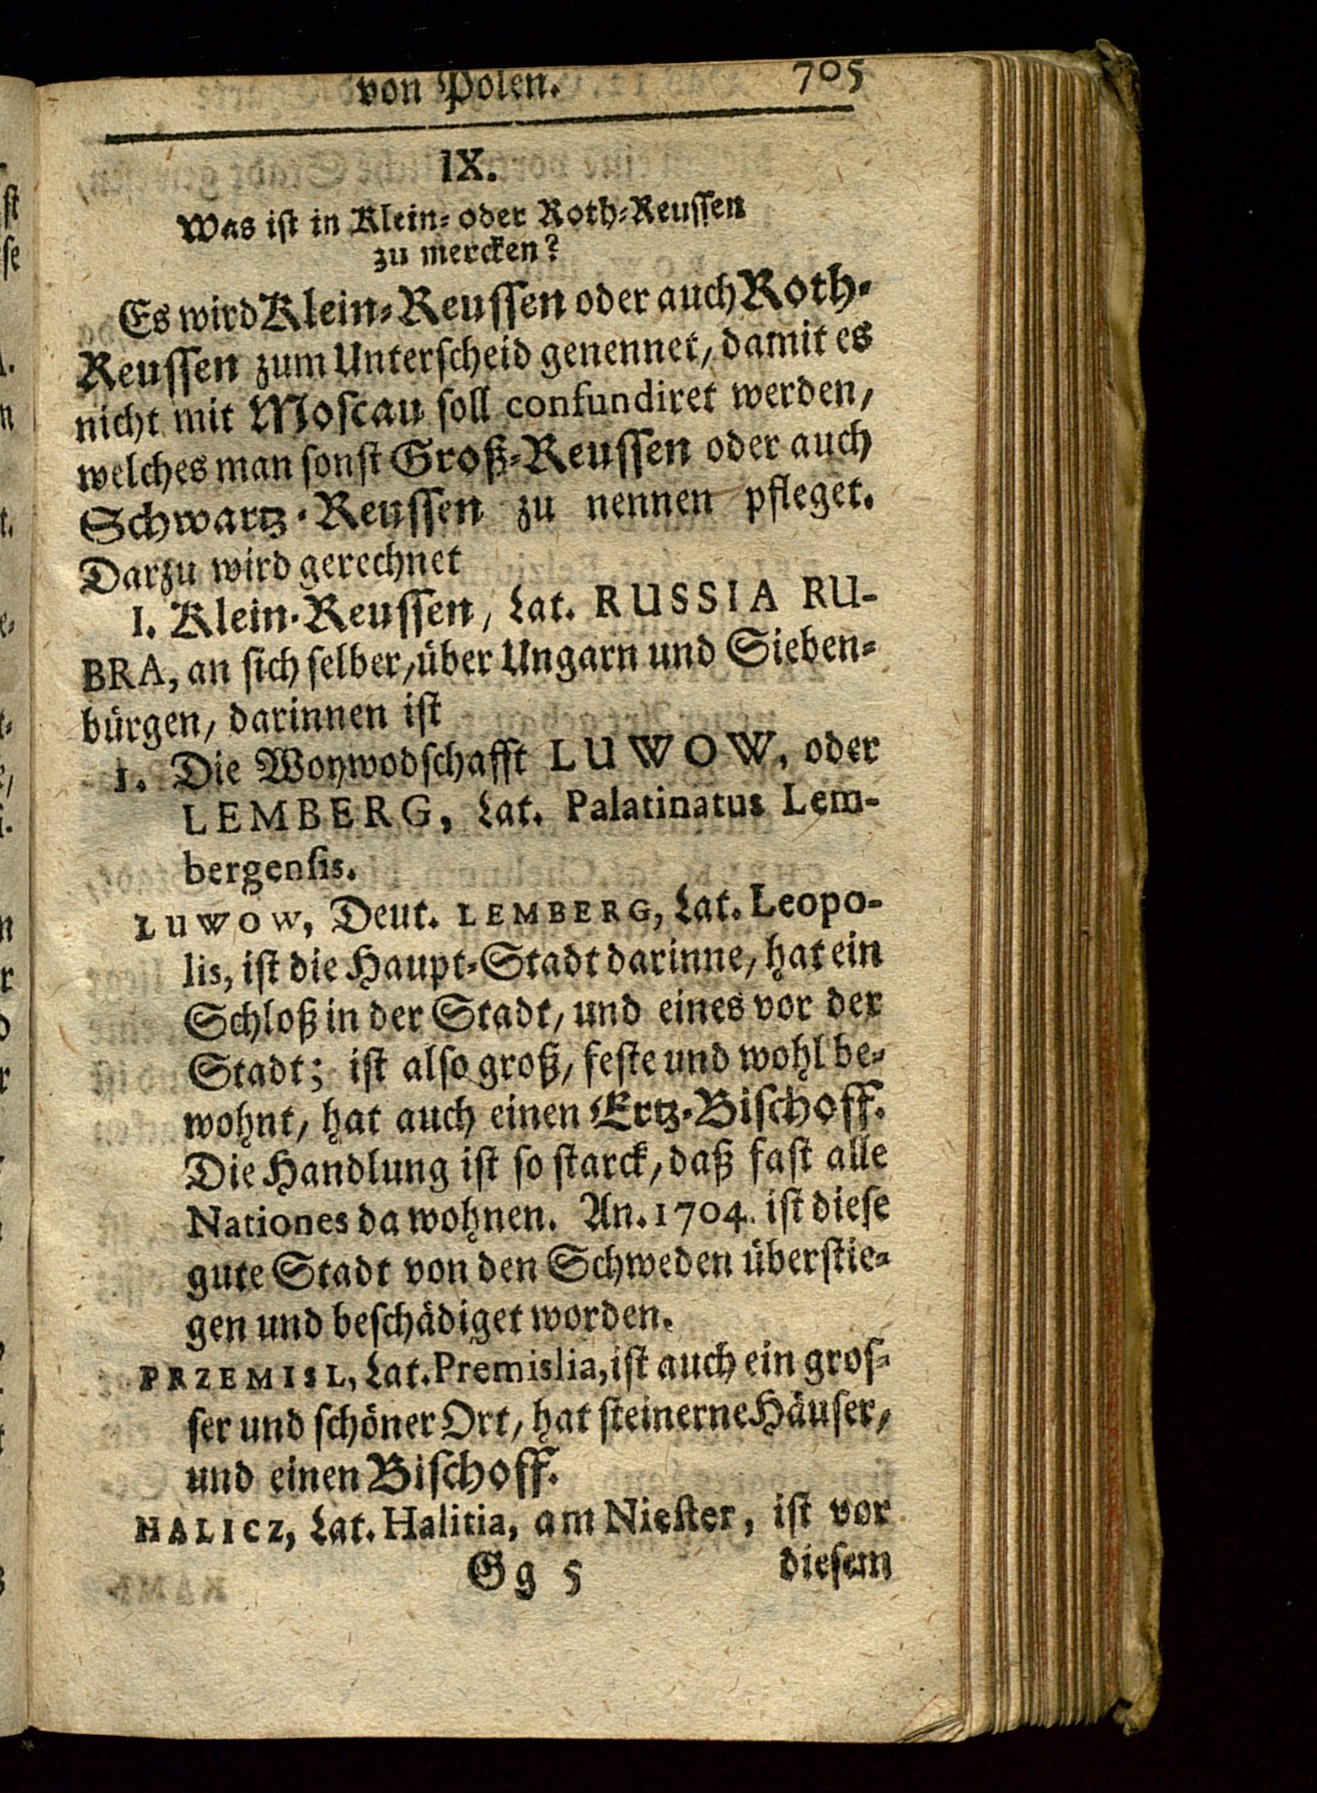 von Polen. 705
IX.
Was ist in Klein- oder Roth-Reussen
zu mercken?
Es wird Klein-Reussen oder auch Roth-
Reussen zum Unterscheid genennet, damit es
nicht mit Moscau soll confundiret werden,
welches man sonst Groß-Reussen oder auch
Schwartz-Reussen zu nennen pfleget.
Darzu wird gerechnet
I. Klein-Reussen, Lat. RUSSIA RU-
BRA, an sich selber, über Ungarn und Sieben-
bürgen, darinnen ist
1. Die Woywodschafft LUWOW, oder
LEMBERG, Lat. Palatinatus Lem-
bergensis.
LUWOW, Deut. LEMBERG, Lat. Leopo-
lis, ist die Haupt-Stadt darinne, hat ein
Schloß in der Stadt, und eines vor der
Stadt; ist also groß, feste und wohl be-
wohnt, hat auch einen Ertz-Bischoff.
Die Handlung ist so starck, daß fast alle
Nationes da wohnen. An. 1704. ist diese
gute Stadt von den Schweden überstie-
gen und beschädiget worden.
PRZEMISL, Lat. Premislia, ist auch ein gros-
ser und schöner Ort, hat steinerne Häuser,
und einen Bischoff.
HALICZ, Lat. Halitia, am Niester, ist vor
Gg 5 diesem